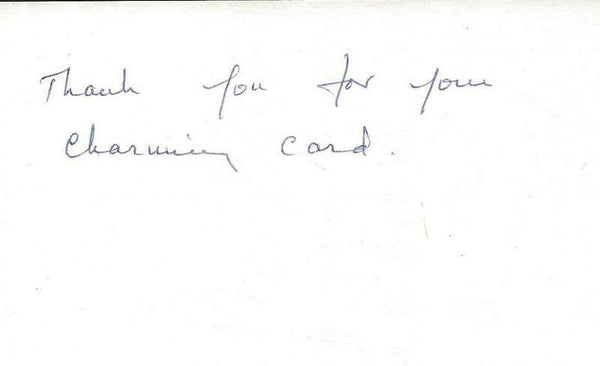 Thank you for your
Charming card.